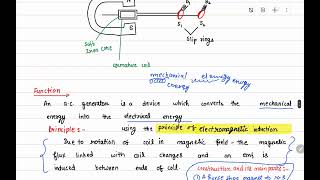 N
S
B₁
B₂
S₁
S₂
Slip rings
Soft
Iron core
armature coil
mechanical
energy
el energy
Function
An a.c. generator is a device which converts the mechanical
energy into the electrical energy
Principle :- using the principle of electromagnetic induction
Due to rotation of coil in magnetic field - the magnetic
flux linked with coil changes and an emf is
induced between ends of coil.
Construction and its main parts :-